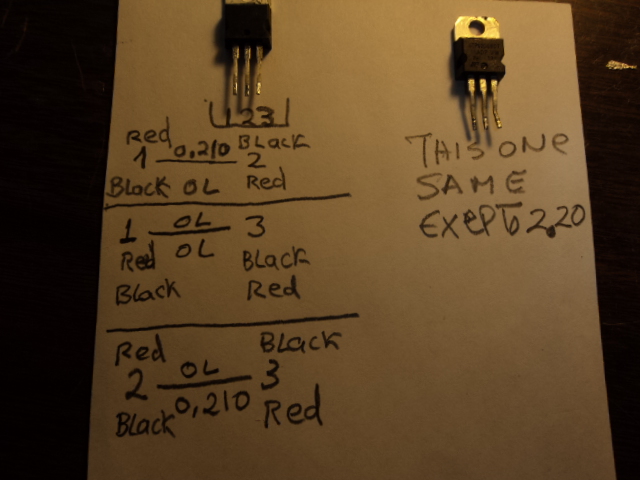 123
Red Black
1 0,210 2
Black OL Red
1 OL 3
Red OL Black
Black Red
Red Black
2 OL 3
Black 0,210 Red
THIS ONE
SAME
EXEPT 2.20